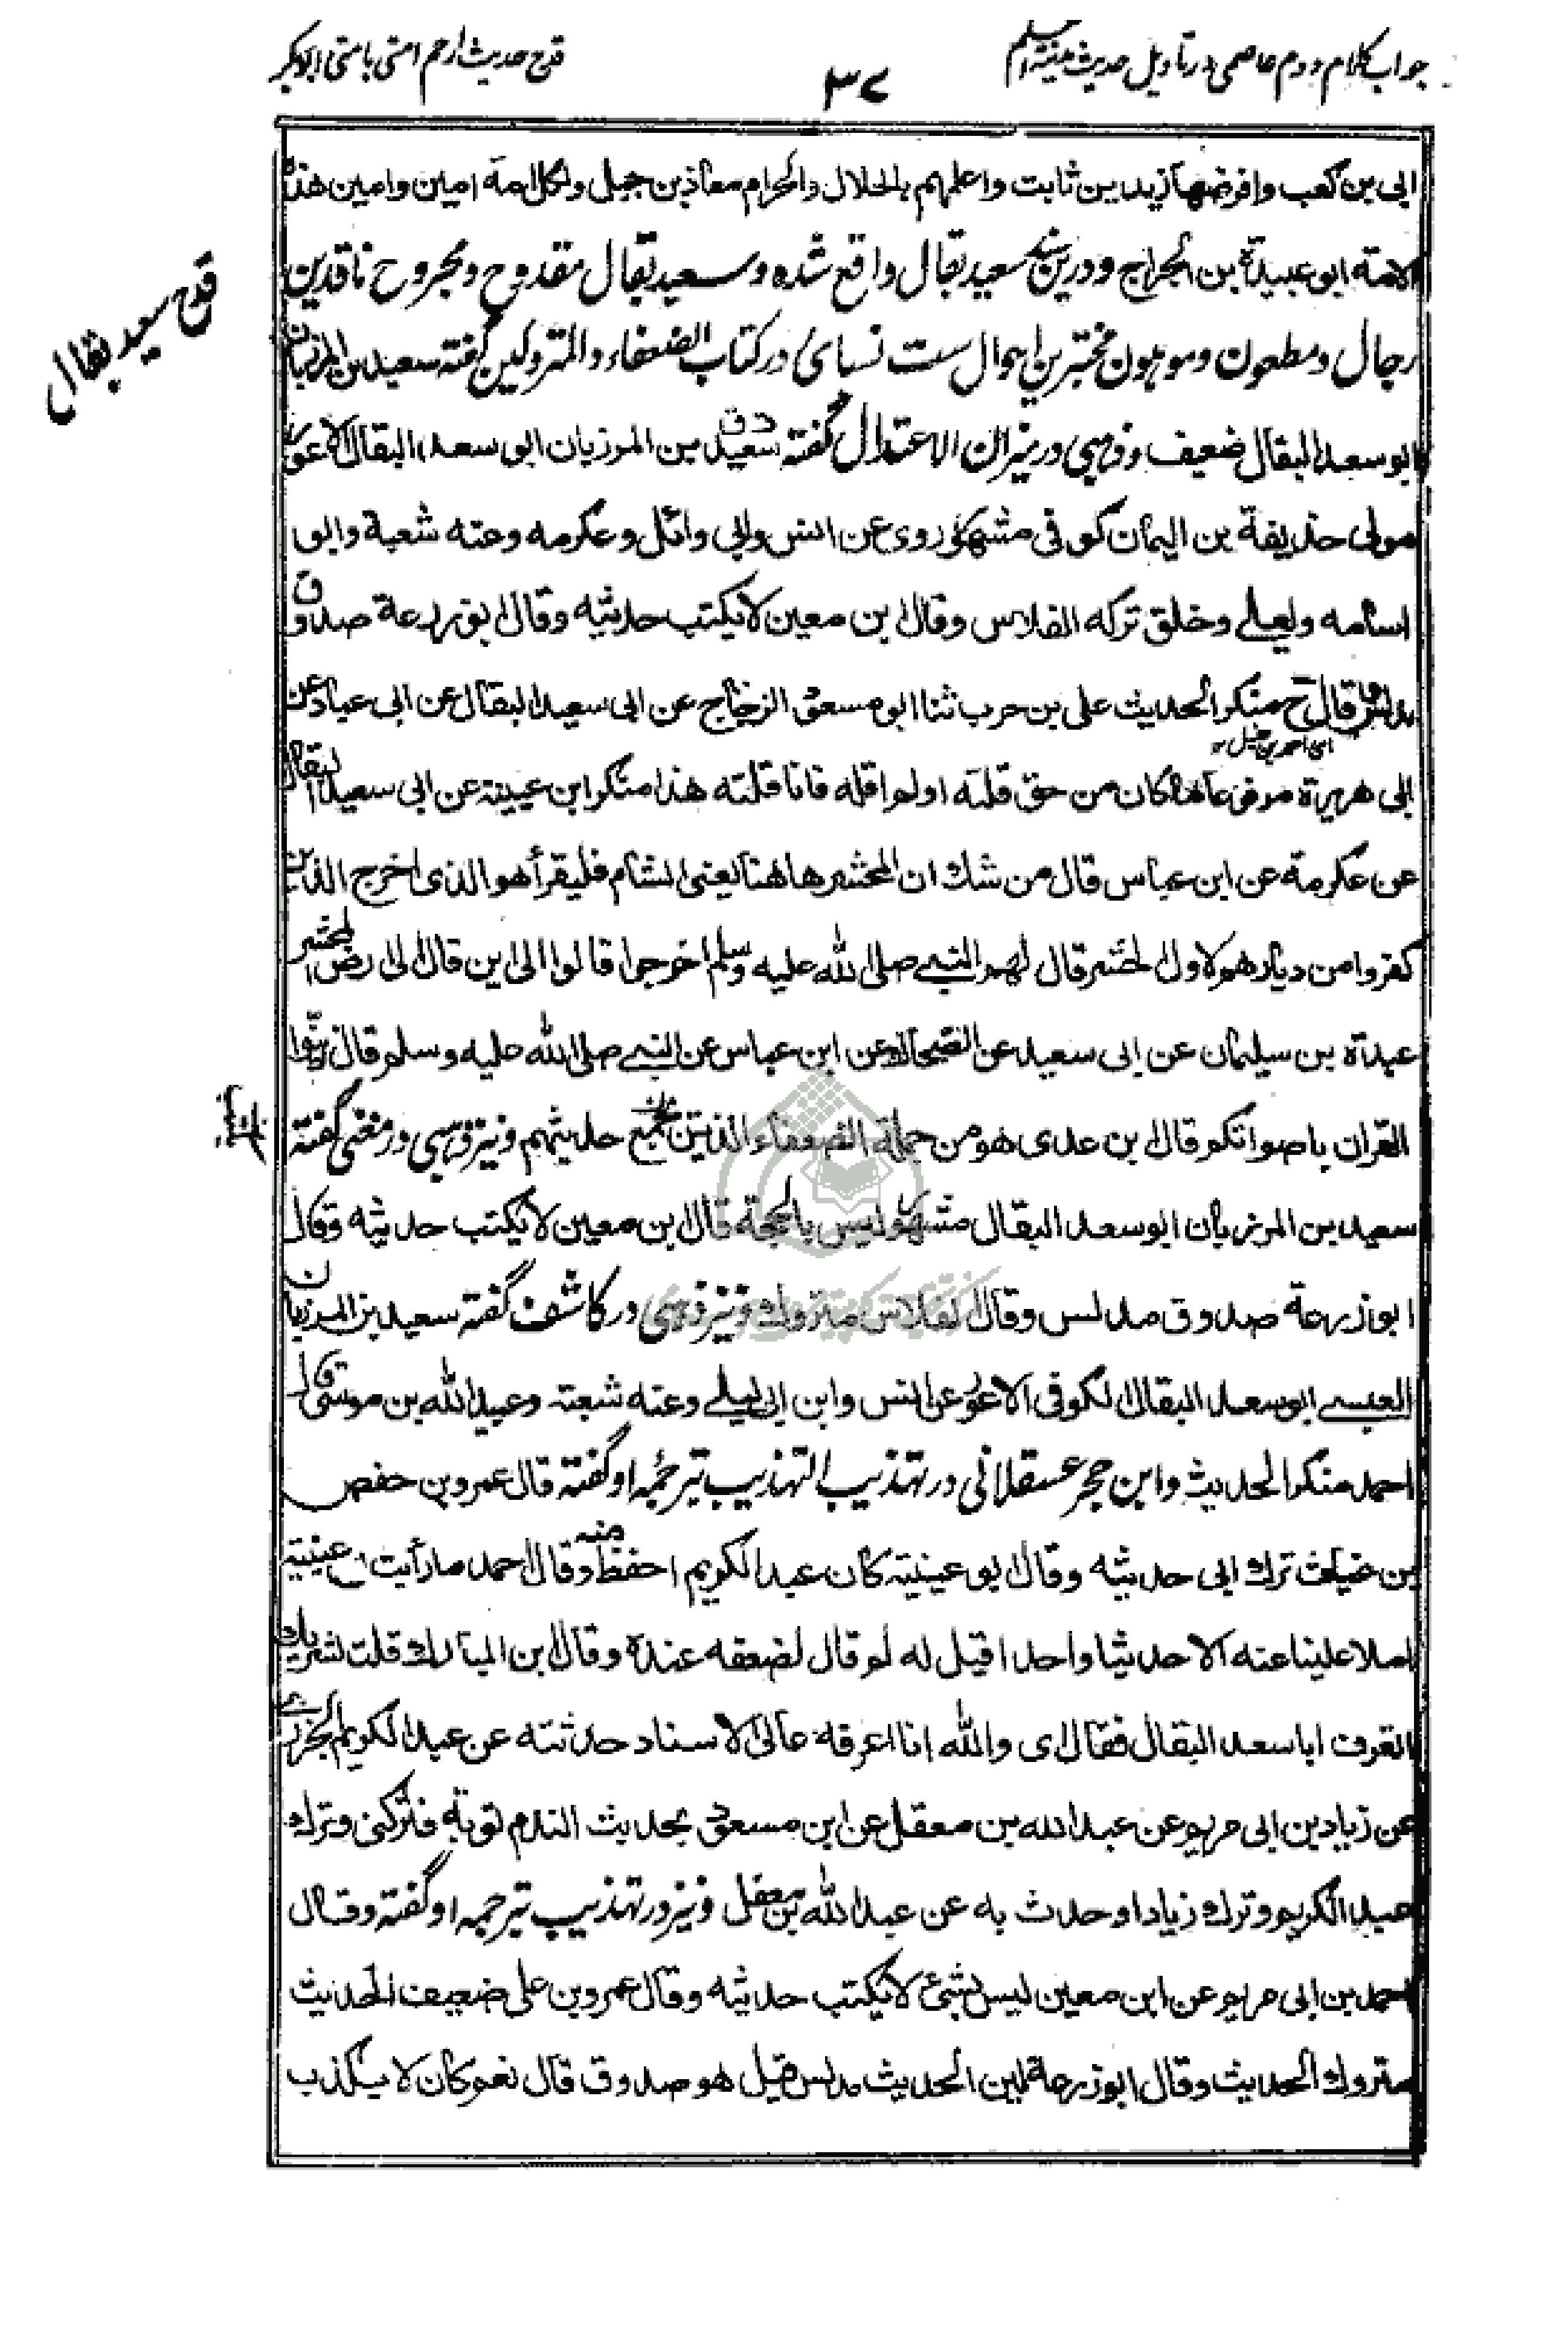 جواب کلام دوم عاصمی در تاویل حدیث مدینة العلم
۳۷
قدح حدیث ارحم امتی بامتی ابوبکر
ابی بن کعب وافرضها زید بن ثابت واعلمهم بالحلال والحرام معاذ بن جبل ولکل امة امین وامین هذه
الامة ابو عبیدة بن الجراح ودرین سعید بقال واقع شده وسعید بقال مقدوح ومجروح ناقدین
رجال ومطعون وموهون مختبرین احوال ست نسائی در کتاب الضعفاء والمتروکین گفته سعید بن المرزبان
ابو سعد البقال ضعیف وذهبی در میزان الاعتدال گفته سعید بن المرزبان ابو سعد البقال الاعور
مولی حذیفة بن الیمان کوفی مشهور روی عن انس وابی وائل وعکرمه وعنه شعبة وابو
اسامه ویعلی وخلق ترکه الفلاس وقال ابن معین لا یکتب حدیثه وقال ابو زرعة صدوق
مدلس قال خ منکر الحدیث علی بن حرب ثنا ابو مسعود الزجاج عن ابی سعید البقال عن ابی عباد عن
ای احمد بن حنبل
ابی هریرة مرفوعا کان من حق قلته اولم اقله فانا قلته هذا منکر ابن عیینة عن ابی سعید البقال
عن عکرمة عن ابن عباس قال من شک ان المحشر هاهنا یعنی الشام فلیقرأ هو الذی اخرج الذین
کفروا من دیارهم لاول الحشر قال لهم النبی صلی الله علیه وسلم اخرجوا قالوا الی این قال الی ارض المحشر
عبدة بن سلیمان عن ابی سعید عن الضحاک عن ابن عباس عن النبی صلی الله علیه وسلم قال زینوا
القران باصواتکم قال ابن عدی هو من جملة الضعفاء الذین یجمع حدیثهم ونیز ذهبی در مغنی گفته
سعید بن المرزبان ابو سعد البقال مشهور لیس بالحجة قال ابن معین لا یکتب حدیثه وقال
ابو زرعة صدوق مدلس وقال الفلاس متروک ونیز ذهبی در کاشف گفته سعید بن المرزبان
العبسی ابو سعد البقال الکوفی الاعور عن انس وابن ابی لیلی وعنه شعبة وعبید الله بن موسی قال
احمد منکر الحدیث وابن حجر عسقلانی در تهذیب التهذیب بترجمه او گفته قال عمرو بن حفص
بن غیاث ترک ابی حدیثه وقال ابو عیینة کان عبد الکریم احفظ منه وقال احمد ما رأیت ابن عیینة
املا علینا عنه الا حدیثا واحدا قیل له لم قال لضعفه عنده وقال ابن المبارک قلت لشریک
اتعرف ابا سعد البقال فقال ای والله انا اعرفه عالی الاسناد حدثته عن عبد الکریم الجزری
عن زیاد بن ابی مریم عن عبد الله بن معقل عن ابن مسعود بحدیث الندم توبة فترکنی وترک
عبد الکریم وترک زیادا وحدث به عن عبد الله بن معقل ونیز در تهذیب بترجمه او گفته وقال
احمد بن ابی مریم عن ابن معین لیس بشئ لا یکتب حدیثه وقال عمرو بن علی ضعیف الحدیث
متروک الحدیث وقال ابو زرعة لین الحدیث مدلس قیل هو صدوق قال نعم کان لا یکذب
قدح سعید بقال